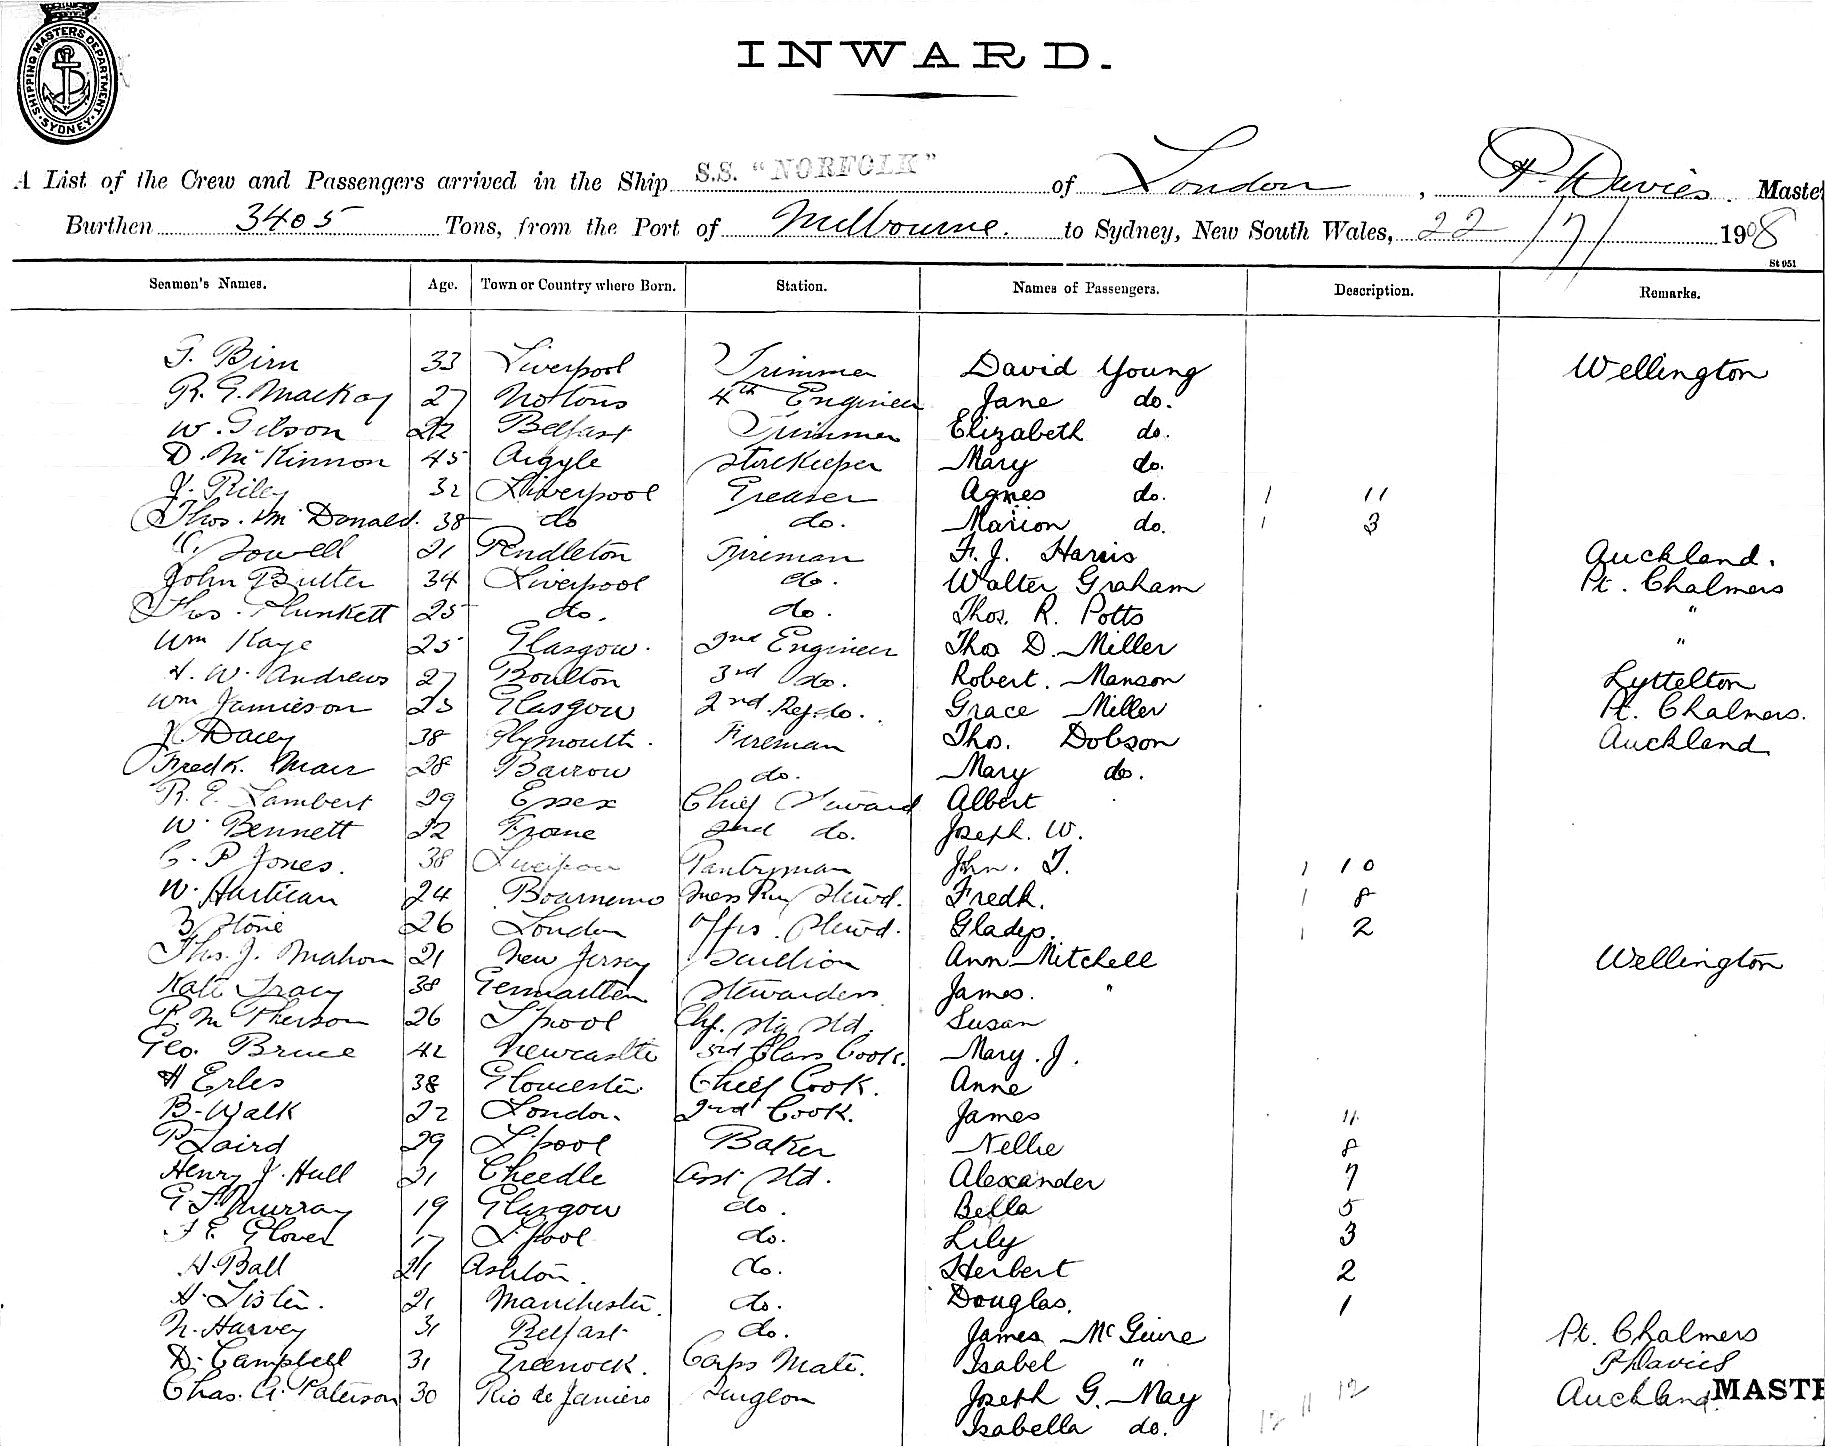 SHIPPING MASTERS DEPARTMENT. SYDNEY.
INWARD.
A List of the Crew and Passengers arrived in the Ship S.S. "NORFOLK" of London, P. Davies. Maste
Burthen 3405 Tons, from the Port of Melbourne. to Sydney, New South Wales, 22/7/ 1908
St 051
Seamen's Names. Age. Town or Country where Born. Station. Names of Passengers. Description. Remarks.
G. Birn 33 Liverpool Trimmer David Young Wellington
R. G. Mackay 27 4th Engineer Jane do.
W. Gilson 22 Belfast Trimmer Elizabeth do.
D. McKinnon 45 Argyle Storekeeper Mary do.
J. Riley 32 Liverpool Greaser Agnes do. 1 11
Thos. Mc Donald. 38 do do. Marion do. 1 3
Powell 21 Pendleton Fireman F. J. Harris Auckland.
John Butter 34 Liverpool do. Walter Graham Pt. Chalmers
Thos. Plunkett 25 do. do. Thos. R. Potts "
Wm Kaye 25 Glasgow. 2nd Engineer Thos D. Miller "
H. W. Andrews 27 Boulton 3rd do. Robert. Manson Lyttelton
Wm Jamieson 23 Glasgow 2nd Ref. do. Grace Miller Pt. Chalmers.
J Dacey 38 Plymouth. Fireman Thos. Dobson Auckland
Fredk. Mair 28 Barrow do. Mary do.
R. E. Lambert 29 Essex Chief Steward Albert
W. Bennett 22 Frome 2nd do. Joseph. W.
C. P Jones. 38 Liverpool Pantryman John. T. 1 10
W. Hartican 24 Bournemo Mess Rm Stewd. Fredk. 1 8
B Stone 26 London Offrs. Stewd. Gladys. 1 2
Thos. J. Mahon 21 New Jersey Scullion Ann Mitchell Wellington
Kate Tracy 38 Stewardess James. "
P. Mc Pherson 26 L'pool Chf. Stg Std. Susan
Geo. Bruce 42 Newcastle 3rd Class Cook. Mary. J.
H Erles 38 Gloucester Chief Cook. Anne
B. Walk 22 London 2nd Cook. James 11
P Laird 29 L'pool Baker Nellie 8
Henry J. Hull 21 Cheedle Asst Std. Alexander 7
G. S. Murray 19 Glasgow do. Bella 5
F E. Glover 17 L'pool do. Lily 3
H. Ball 21 Ashton. do. Herbert 2
H. Lister. 21 Manchester. do. Douglas. 1
N. Harvey 31 Belfast do. James McGuire Pt. Chalmers
D. Campbell 31 Greenock. Carps Mate. Isabel " P Davies
Chas. A. Paterson 30 Rio de Janiero Surgeon Joseph G. May 12 11 12 Auckland. MASTE
Isabella do.